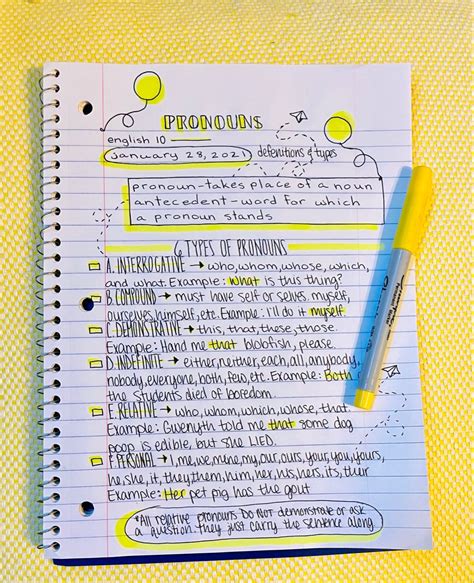 PRONOUNS
english 10
January 28, 2021 definitions & types
pronoun-takes place of a noun
antecedent-word for which
a pronoun stands
6 TYPES OF PRONOUNS
A. INTERROGATIVE → who, whom, whose, which,
and what. Example: What is this thing?
B. COMPOUND → must have self or selves. myself,
ourselves, himself, etc. Example: I'll do it myself
C. DEMONSTRATIVE → this, that, these, those.
Example: Hand me that blobfish, please.
D. INDEFINITE → either, neither, each, all, anybody,
nobody, everyone, both, few, etc. Example: Both
the students died of boredom.
E. RELATIVE → who, whom, which, whose, that.
Example: Gwenyth told me that some dog
poop is edible, but she LIED.
F. PERSONAL → I, me, we, mine, my, our, ours, your, you, yours,
he, she, it, they, them, him, her, his, hers, its, their
Example: Her pet pig has the gout
*All relative pronouns DO NOT demonstrate or ask
a question. they just carry the sentence along.